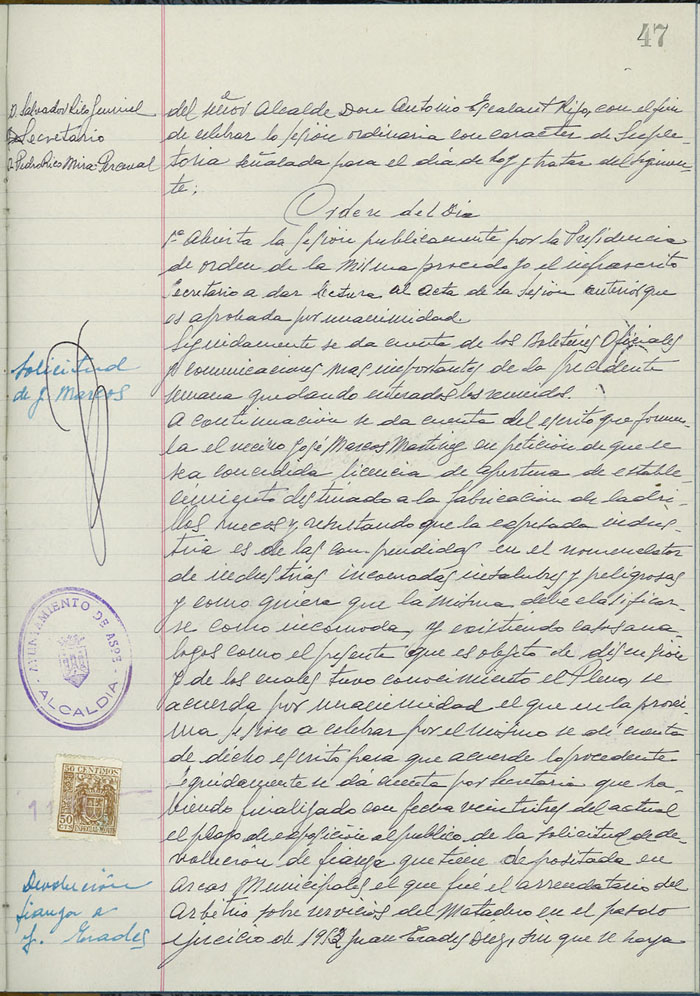 47
D. Salvador Rico
Secretario
D. Pedro Rico Mira-Perceval
del señor Alcalde Don Antonio Escalant Rizo, con el fin
de celebrar la sesión ordinaria con caracter de Suple-
toria señalada para el día de hoy y tratar del siguien-
te:
Orden del Día
1º Abierta la sesión publicamente por la Presidencia
de orden de la misma procedo yo el infrascrito
Secretario a dar lectura al acta de la sesión anterior que
es aprobada por unanimidad.
Seguidamente se da cuenta de los Boletines Oficiales
y comunicaciones mas importantes de la precedente
semana quedando enterados los reunidos.
Solicitud
de J. Marcos
A continuación se da cuenta del escrito que formu-
la el vecino José Marcos Martinez en petición de que le
sea concedida licencia de apertura de estable-
cimiento destinado a la fabricación de ladri-
llos huecos y, resultando que la expresada indus-
tria es de las comprendidas en el nomenclator
de industrias incomodas insalubres y peligrosas
y como quiera que la misma debe clasificar-
se como incomoda, y existiendo casos ana-
logos como el presente que es objeto de discusión
y de los cuales tuvo conocimiento el Pleno, se
acuerda por unanimidad el que en la proxi-
ma sesión a celebrar por el mismo se dé cuenta
de dicho escrito para que acuerde lo procedente.
AYUNTAMIENTO DE ASPE
ALCALDIA
50 CENTIMOS
50
CTS
ESPECIAL MOVIL
11
Seguidamente se dá cuenta por Secretaria que ha-
biendo finalizado con fecha veintitres del actual
el plazo de exposición al publico de la solicitud de de-
volución de fianza que tiene depositada en
Devolución
fianza a
J. Erades
Arcas Municipales el que fué el arrendatario del
Arbitrio sobre servicios del Matadero en el pasado
ejercicio de 1952 Juan Erades Diez, sin que se haya